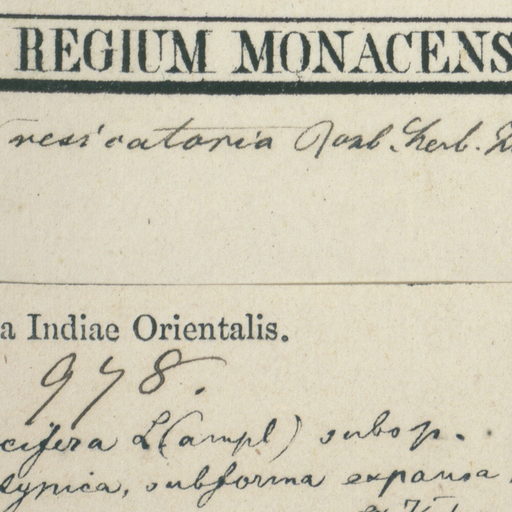 REGIUM MONACENS
vesicatoria Roxb. herb.
a Indiae Orientalis.
978.
cifera L (ampl) subsp.
typica, subforma expansa